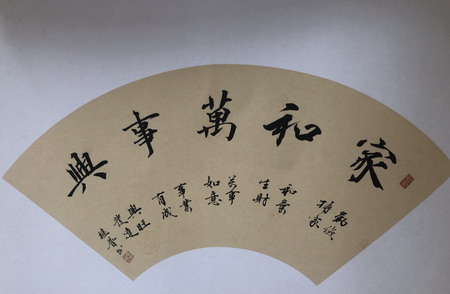 家和萬事興
和氣
生財
萬事
如意
事業
有成
興旺
發達